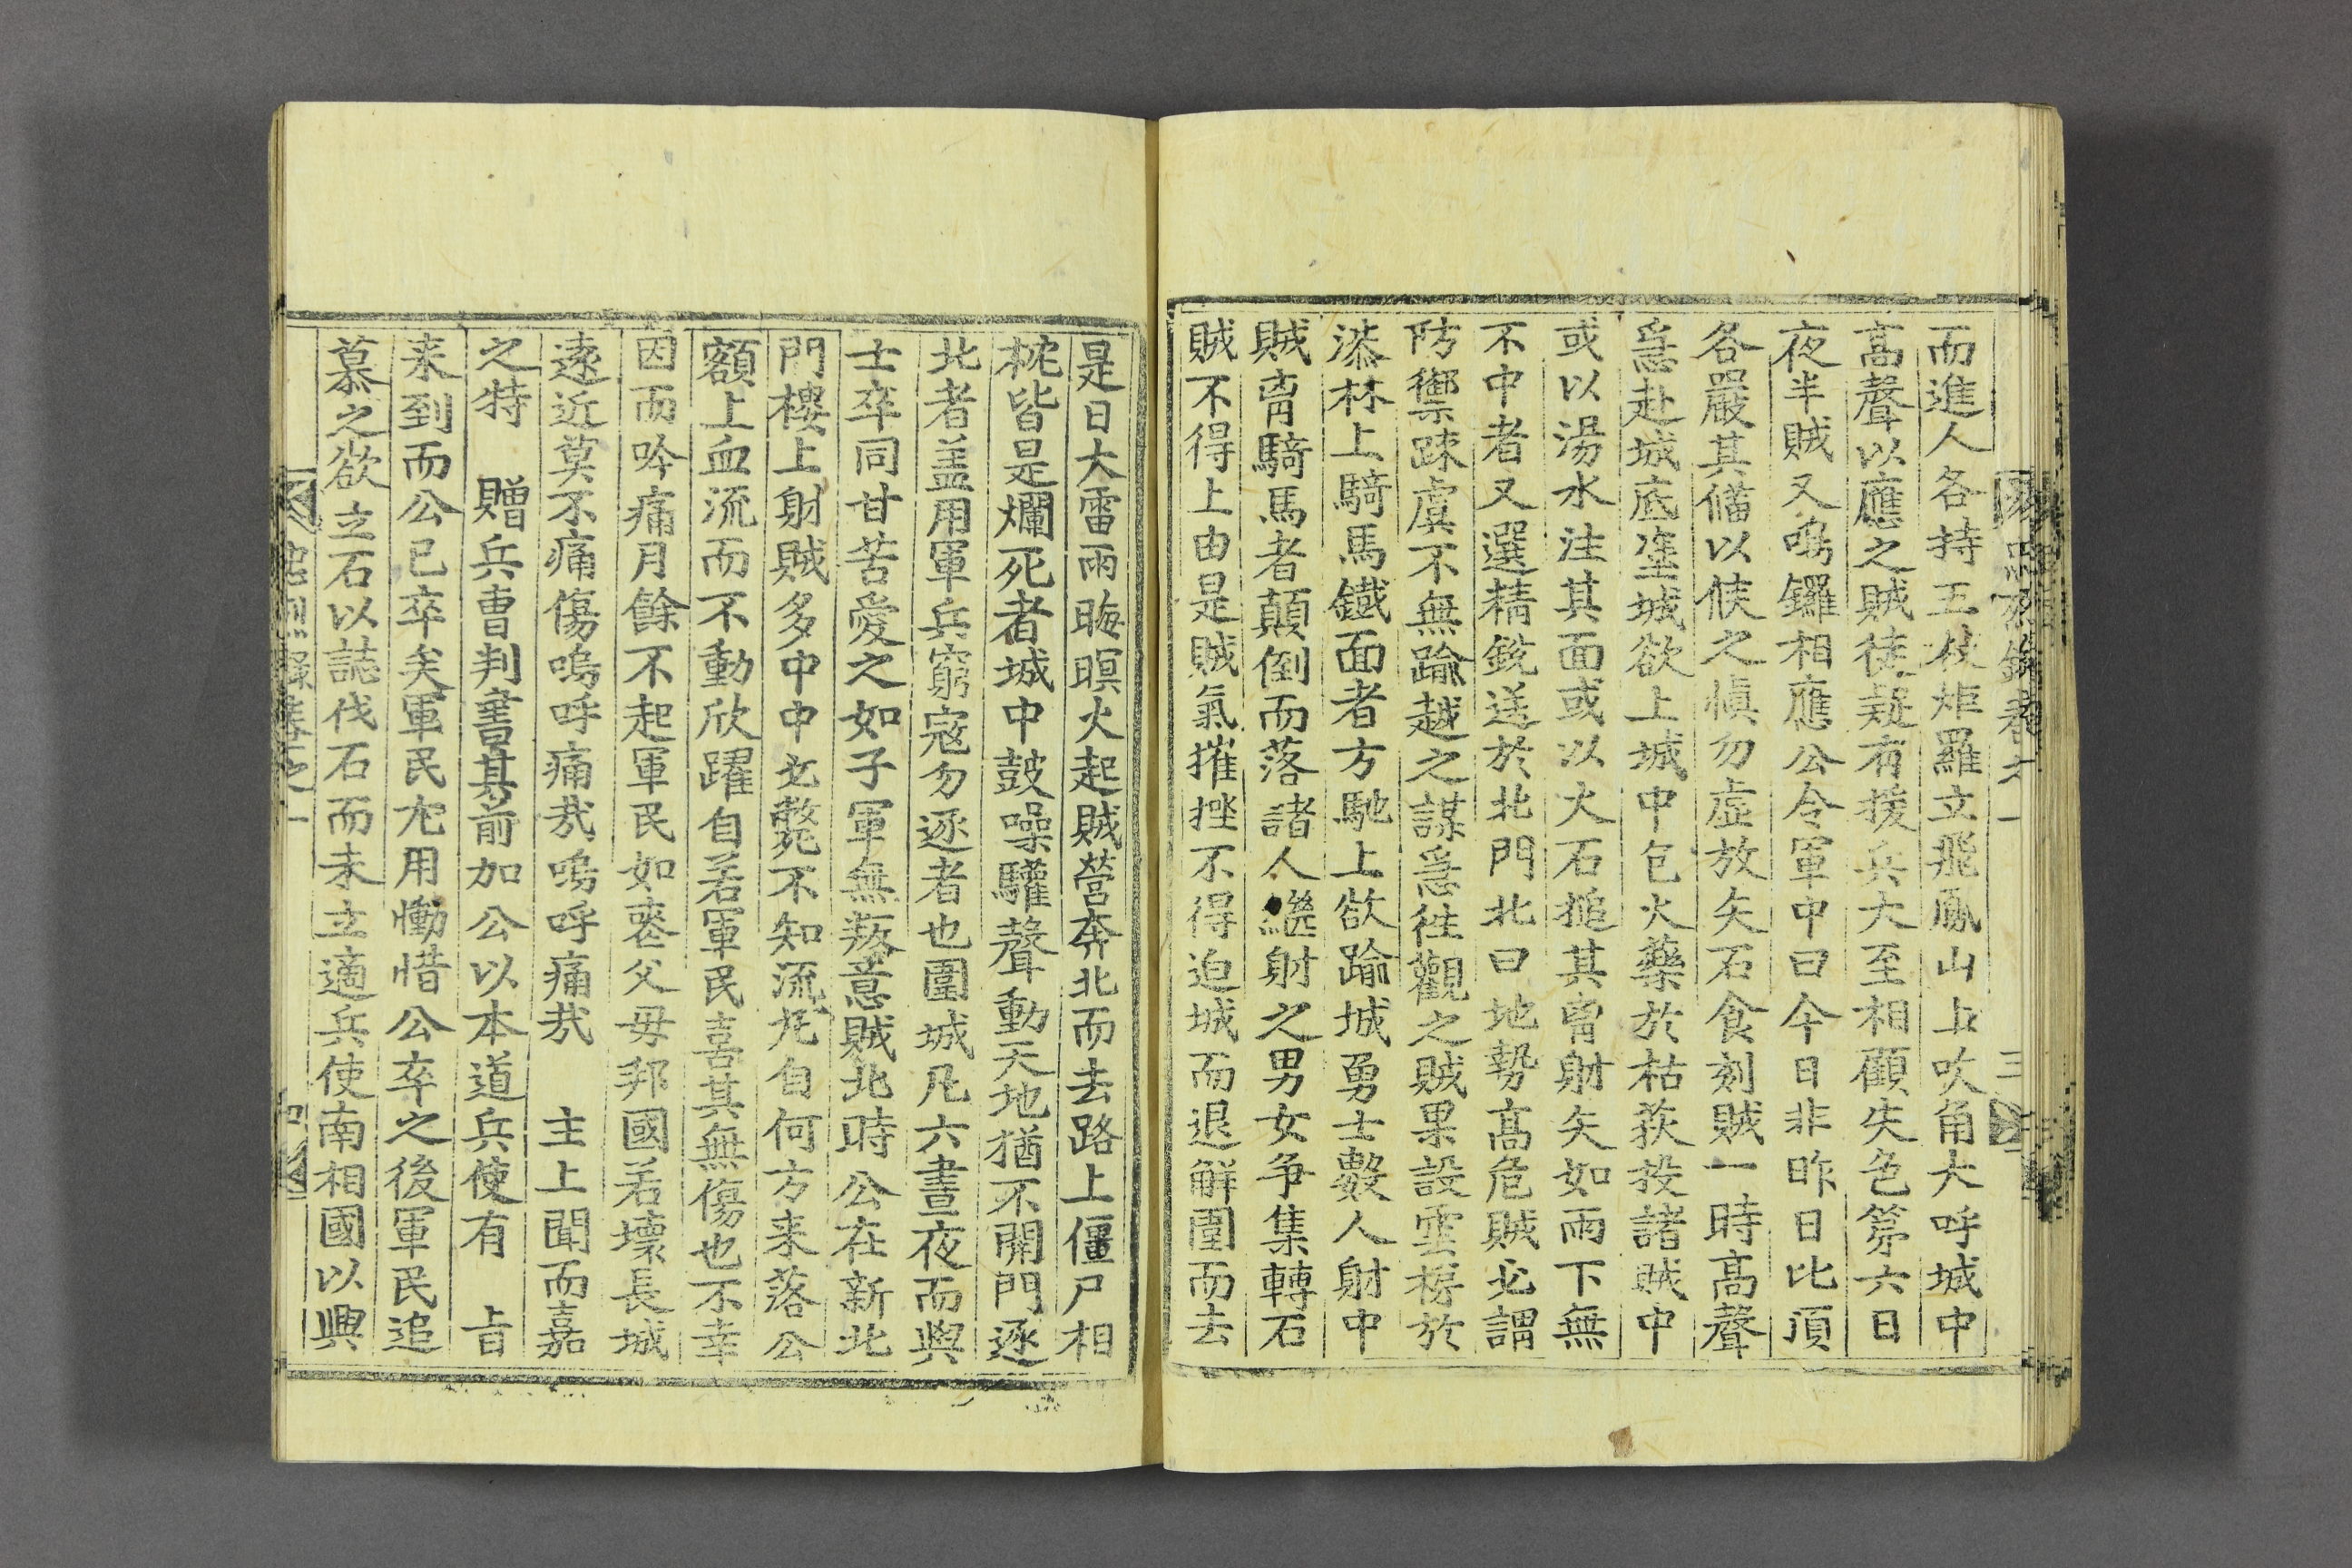 而進人各持五枝炬羅立飛鳳山上吹角大呼城中
高聲以應之賊徒疑有援兵大至相顧失色第六日
夜半賊又鳴鑼相應公令軍中曰今日非昨日比須
各嚴其備以俟之愼勿虛放矢石食刻賊一時高聲
急赴城底塡城欲上城中包火藥於枯荻投諸賊中
或以湯水注其面或以大石搥其胷射矢如雨下無
不中者又選精銳送於北門北曰地勢高危賊必謂
防禦踈虞不無踰越之謀急往觀之賊果設雲梯於
漆林上騎馬鐵面者方馳上欲踰城勇士數人射中
賊胷騎馬者顚倒而落諸人繼射之男女爭集轉石
賊不得上由是賊氣摧挫不得迫城而退解圍而去
是日大雷雨晦暝火起賊營奔北而去路上僵尸相
枕皆是爛死者城中鼓噪驩聲動天地猶不開門逐
北者盖用軍兵窮寇勿逐者也圍城凡六晝夜而與
士卒同甘苦愛之如子軍無叛意賊北時公在新北
門樓上射賊多中中必斃不知流丸自何方来落公
額上血流而不動欣躍自若軍民喜其無傷也不幸
因而吟痛月餘不起軍民如喪父母邦國若壞長城
遠近莫不痛傷嗚呼痛㦲嗚呼痛㦲 主上聞而嘉
之特 贈兵曺判書其前加公以本道兵使有 旨
来到而公已卒矣軍民尤用慟惜公卒之後軍民追
慕之欲立石以誌伐石而未立適兵使南相國以興